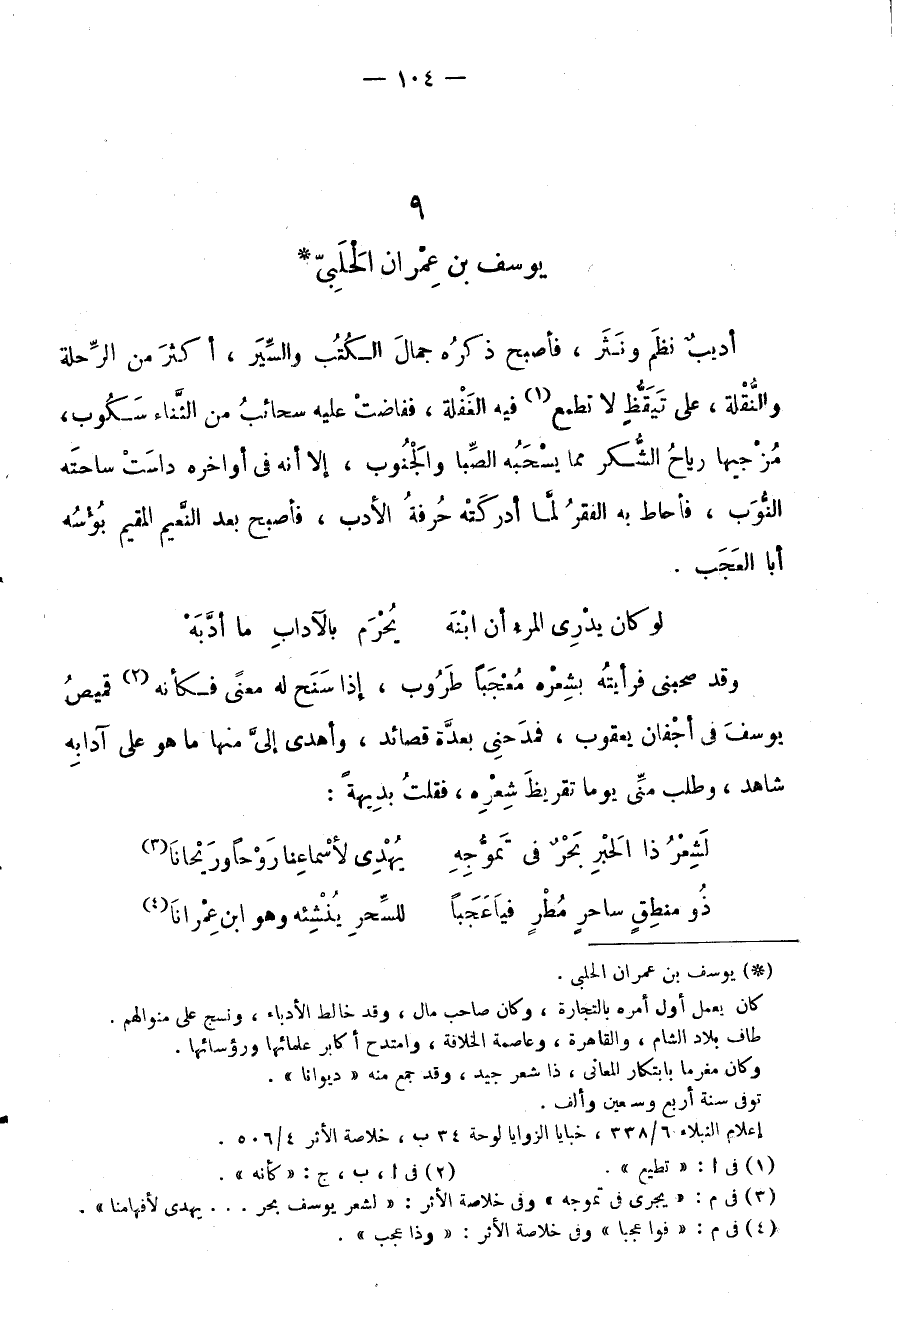 — ١٠٤ —
٩
يوسف بن عِمْران الحَلَبِىّ*
أديبٌ نظَم ونَثَر ، فأصبح ذكرُه جمالَ الكُتُب والسِّيَر ، أكثرَ من الرِّحلة
والنُّقْلة ، على تَيَقُّظٍ لا تطمع(١) فيه الغَفْلة ، ففاضتْ عليه سحائبُ من الثَّناء سَكُوب ،
مُزْجيها رياحُ الشُّكر مما يسْحَبُه الصِّبا والجْنُوب ، إلا أنه فى أواخره داسَتْ ساحتَه
النُّوَب ، فأحاط به الفقرُ لمَّا أدركَتْه حُرفةُ الأدب ، فأصبح بعد النَّعيم المقيم بُؤْسُه
أبا العَجَب .
لو كان يدْرِى المرء أن ابْنَه يُحْرَم بالآدابِ ما أدَّبَهْ
وقد صحبنى فرأيتُه بشِعْرْه مُعْجَباً طَرُوب ، إذا سَنَح له معنًى فكأنه(٢) قميصُ
يوسفَ فى أجْفان يعقوب ، فمدَحنِى بعدَّة قصائد ، وأهدى إلىَّ منها ما هو على آدابِه
شاهد ، وطلب منِّى يوما تقريظَ شِعْرِه ، فقلتُ بدِيهةً :
لَشِعْرُ ذا الحَبْرِ بَحْرٌ فى تَموُّجِهِ يُهْدِى لأسْماعِنا رَوْحاً ورَيْحانَا(٣)
ذُو منطِقٍ ساحرٍ مُطْرٍ فياَعَجَباً للسِّحرِ يُنْشِئه وهو ابن عِمْرانَا(٤)
(*) يوسف بن عمران الحلبى .
كان يعمل أول أمره بالتجارة ، وكان صاحب مال ، وقد خالط الأدباء ، ونسج على منوالهم .
طاف بلاد الشام ، والقاهرة ، وعاصمة الخلافة ، وامتدح أكابر علمائها ورؤسائها .
وكان مغرما بابتكار المعانى ، ذا شعر جيد ، وقد جمع منه « ديوانا » .
توفى سنة أربع وسبعين وألف .
إعلام النبلاء ٣٣٨/٦ ، خبايا الزوايا لوحة ٣٤ ب ، خلاصة الأثر ٥٠٦/٤ .
(١) فى ا : « تطيع » . (٢) فى ا ، ب ، ج : « كأنه » .
(٣) فى م : « يجرى فى تموجه » وفى خلاصة الأثر : « لشعر يوسف بحر . . . يهدى لأفهامنا » .
(٤) فى م : « فوا عجبا » وفى خلاصة الأثر : « وذا عجب » .